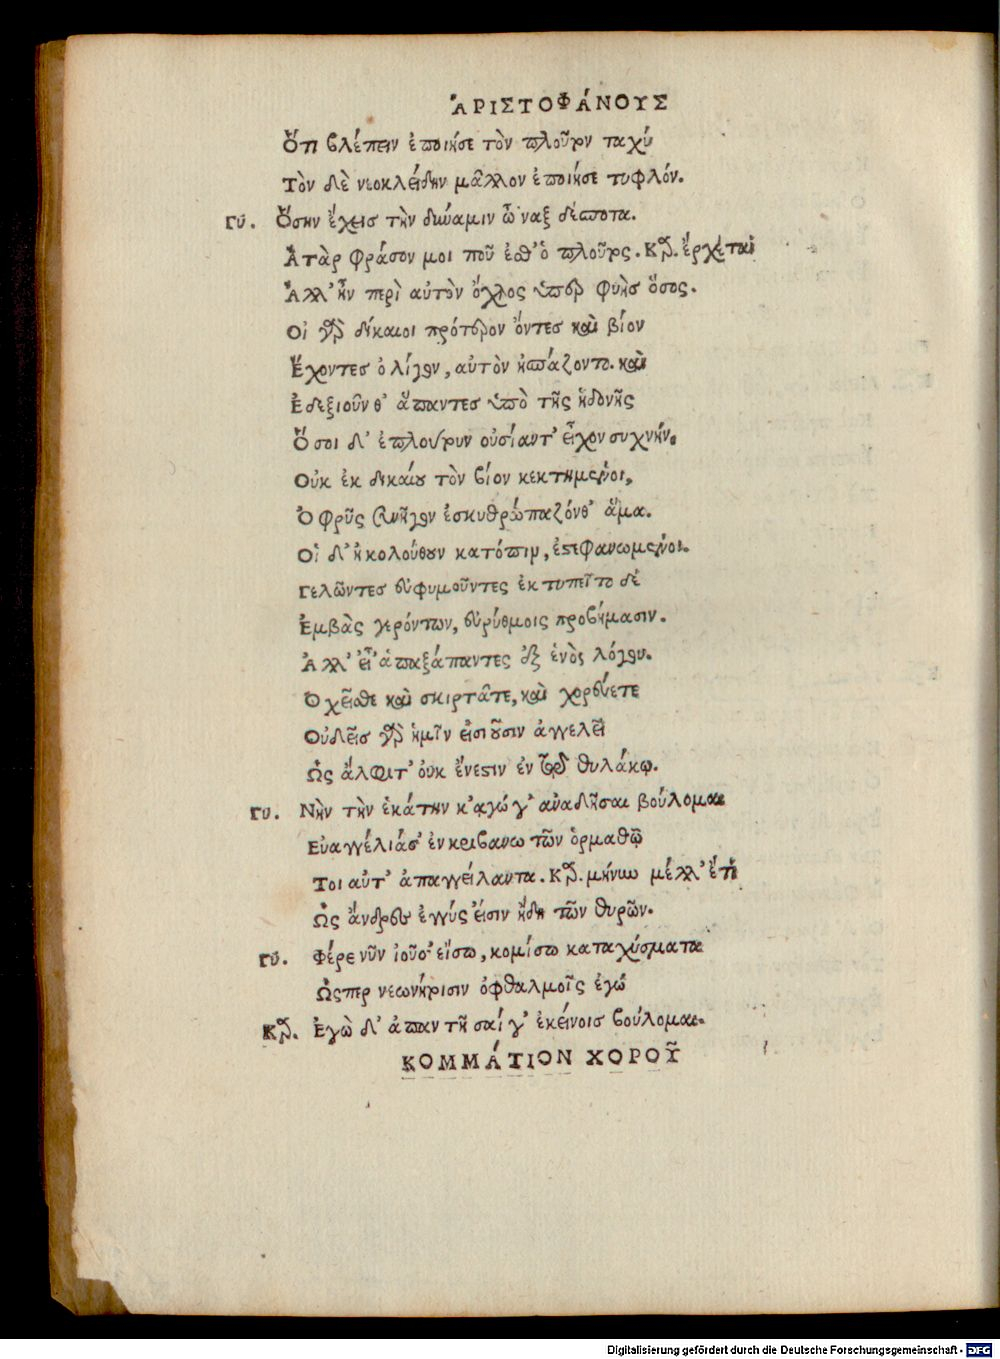 ἈΡΙΣΤΟΦΆΝΟΥΣ
Ὅτι βλέπειν ἐποίησε τὸν πλοῦτον ταχύ
Τὸν δὲ νεοκλείδην μᾶλλον ἐποίησε τυφλόν.
Γύ. Ὅσην ἔχεισ τὴν δύναμιν ὦ ναξ δέσποτα.
Ἀτὰρ φράσον μοι ποῦ ἐσθ' ὁ πλοῦτος. Κρ. ἔρχεται
Ἀλλ' ἦν περὶ αὐτὸν ὄχλος ὑπερφυὴσ ὅσος.
Οἱ γὰρ δίκαιοι πρότερον ὄντες καὶ βίον
Ἔχοντεσ ὀλίγον, αὐτὸν ἠσπάζοντο. καὶ
Ἐδεξιοῦνθ' ἅπαντεσ ὑπὸ τῆς ἡδονῆς
Ὅσοι δ' ἐπλούτουν οὐσίαντ' εἶχον συχνήν.
Οὐκ ἐκ δικαίου τὸν βίον κεκτημένοι,
Ὀφρῦς συνῆγον ἐσκυθρώπαζόνθ' ἅμα.
Οἱ δ' ἠκολούθουν κατόπιν, ἐστεφανωμένοι.
Γελῶντεσ εὐφυμοῦντες ἐκτυπεῖτο δέ
Ἐμβὰς γερόντων, εὐρύθμοις προβήμασιν.
Ἀλλ' εἶ' ἁπαξάπαντες ἐξ ἑνὸς λόγου.
Ὀχεῖσθε καὶ σκιρτᾶτε, καὶ χορεύετε
Οὐδεῖσ γὰρ ἡμῖν εἰσιοῦσιν ἀγγελεῖ
Ὡς ἄλφιτ' οὐκ ἔνεστιν ἐν τῷ θυλάκῳ.
Γύ. Νὴν τὴν ἑκάτην κ'αγώ γ' ἀναδῆσαι βούλομαι
Εὐαγγέλιάσ' ἐν κριβανω τῶν ὁρμαθῷ
Τοι αὐτ' ἀπαγγείλαντα. Κρ. μήνυω μέλλ' ἔτι
Ὡς ἄνδρεσ ἐγγύς εἰσιν ἤδη τῶν θυρῶν.
Γύ. Φέρε νῦν ἰοῦσ' εἴσω, κομίσω καταχύσματα
Ὥςπερ νεωνήτοισιν ὀφθαλμοῖς ἐγώ
Κρ. Ἐγὼ δ' ἀπαντῆσαί γ' ἐκείνοισ βούλομαι.
ΚΟΜΜΆΤΙΟΝ ΧΟΡΟῦ
Digitalisierung gefördert durch die Deutsche Forschungsgemeinschaft - DFG